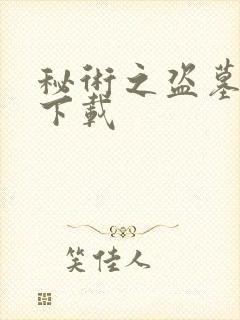 秘術之盗墓
下載
笑佳人